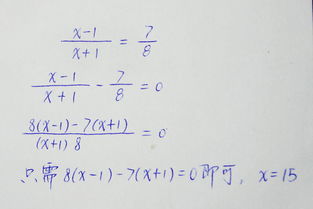 (x-1)/(x+1) = 7/8
(x-1)/(x+1) - 7/8 = 0
(8(x-1)-7(x+1))/((x+1)8) = 0
只需 8(x-1)-7(x+1)=0 即可, x=15